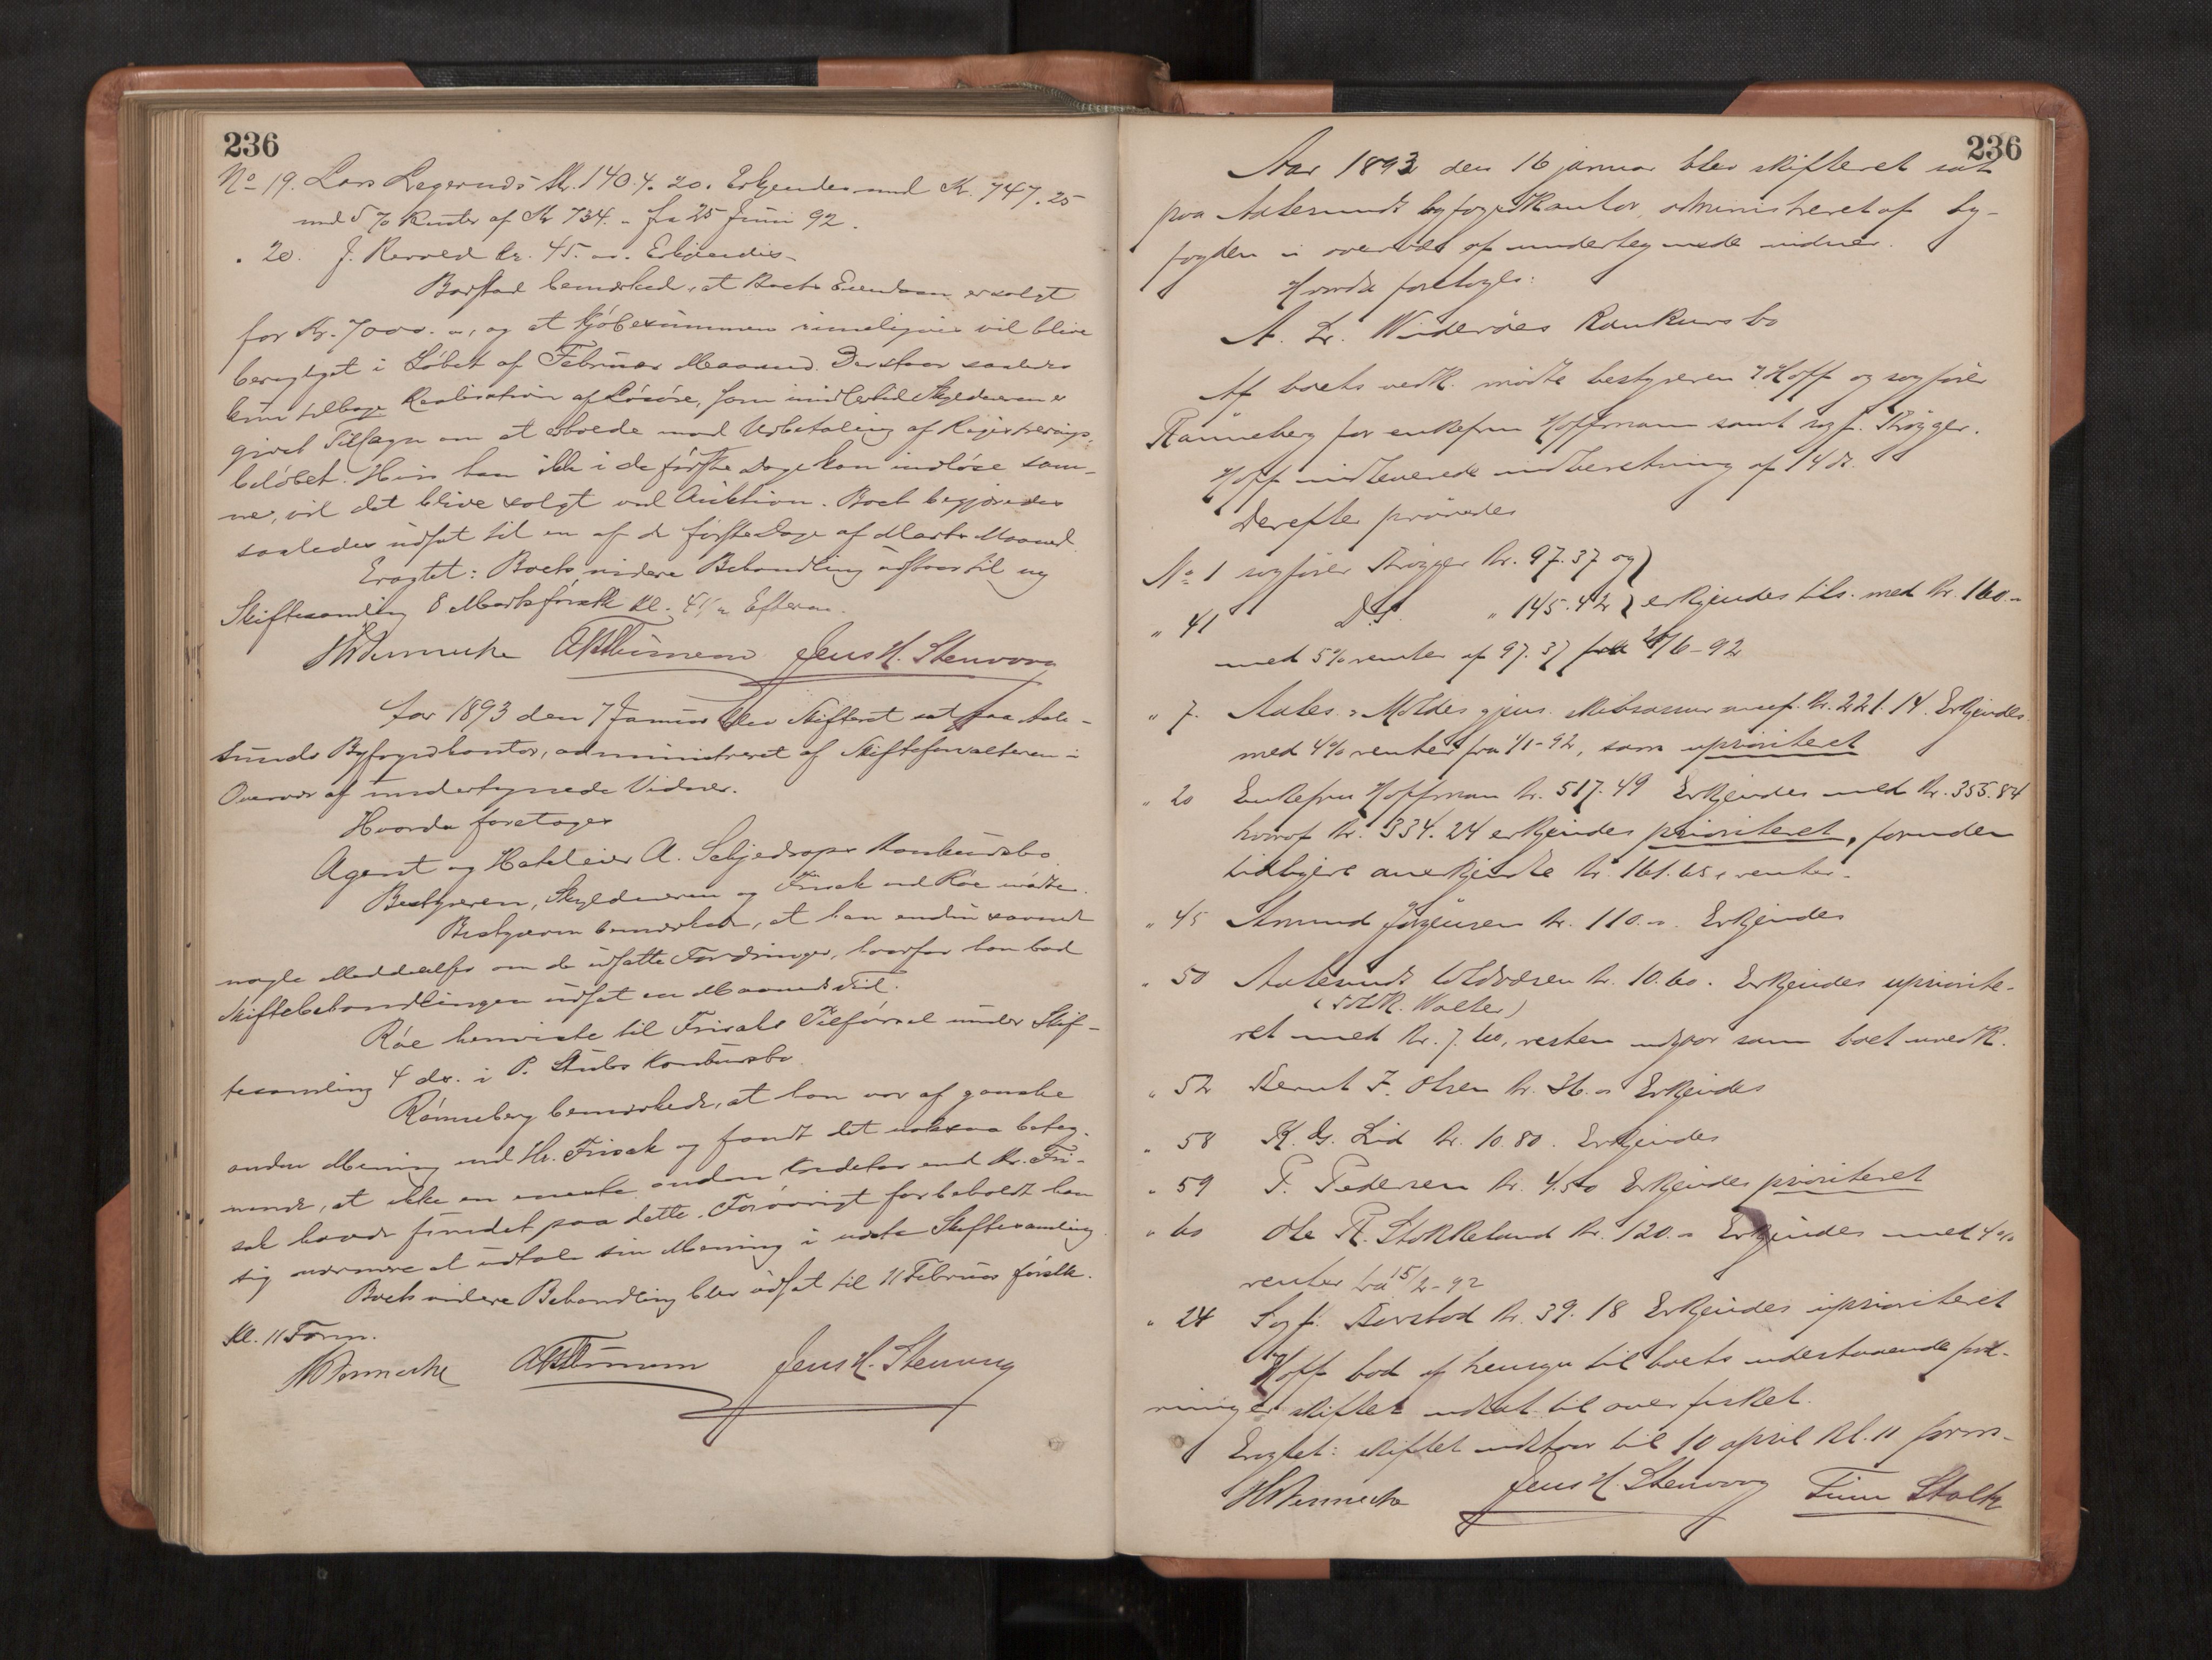 236
No 19. Lars Legernds Kr. 1404.20. Erkjendes med Kr. 747.25
med 5 % Renter af Kr 734.- fra 25 Juni 92.
" 20. J. Rovold Kr. 45.-. Erkjendes.
Barstad bemærked, at Boets Eiendom er solgt
for Kr. 7000.-, og at Kjøbesummen rimeligvis vil blive
berigtiget i Løbet af Februar Maaned. Der staar saaledes
kun tilbage Realisation af Løsøre, som imidlertid Skyldneren er
givet Tilsagn om at erholde mod Udbetaling af Registrerings-
beløbet. Hvis han ikke i de første Dage kan indløse sam-
me, vil det blive solgt ved Auktion. Boet begjæredes
saaledes udsat til en af de første Dage af Marts Maaned.
Eragtet: Boets videre Behandling udstaar til ny
Skiftesamling 8 Marts førstk Kl. 4½ Efterm.
Jens H. Stenvaag
Aar 1893 den 7 Januar blev Skifteret sat paa Aale-
sunds Byfogedkontor, administreret af Skifteforvalteren i
Overvær af undertegnede Vidner.
Hvorda foretoges
Agent og Hoteleier A. Schjedrops Konkursbo.
Bestyreren, Skyldneren og Frisak ved Røe mødte.
Bestyreren bemærkede, at han endnu savnede
nogle Meddelelser om de udsatte Fordringer, hvorfor han bad
Skiftebehandlingen udsat en Maaneds Tid.
Røe henviste til Frisaks Tilførsel under Skif-
tesamling 4 ds. i P. Stubs Konkursbo.
Rønneberg bemærkede, at han var af ganske
anden Mening end Hr. Frisak og fandt det noksaa beteg-
nende, at ikke en eneste anden Kreditor end Hr. Fri-
sak havde fundet paa dette. Forøvrigt forbeholdt han
sig nærmere at udtale sin Mening i næste Skiftesamling.
Boets videre Behandling blev udsat til 11 Februar førstk.
Kl. 11 Form.
Jens H. Stenvaag
236
Aar 1893 den 16 januar blev skifteret sat
paa Aalesunds byfogedkontor, administreret af by-
fogden i overvær af undertegnede vidner.
Hvorda foretoges:
A. Lr. Widerøes Konkursbo
Af boets vedk. mødte bestyreren Hoff og sagfører
Rønneberg for enkefru Hoffmann samt sagf. Krøgger.
Hoff indleverede indberetning af 14 ds.
Derefter prøvedes
No 1 sagfører Krøgger Kr. 97.37 og }
" 41 Do. " 145.42 } erkjendes tils. med Kr. 160.-
med 5% renter af 97.37 fra /6-92
" 7. Aales. & Moldes gjens. skibsassur. Kr. 221.14. Erkjendes
med 4% renter fra 1/1-92, som uprioriteret
" 20 Enkefru Hoffman Kr. 517.49 Erkjendes med Kr. 355.84
hvoraf Kr. 334.24 erkjendes prioriteret, foruden
tidligere anerkjendte Kr. 161.65 & renter.
" 45 Amund Jørgensen Kr. 110.-. Erkjendes
" 50 Aalesunds toldvæsen Kr. 10.60. Erkjendes upriorite-
ret med Kr. 7.60, resten udgaar som boet uvedk.
" 52 Bernt F. Olsen Kr. 36.- Erkjendes
" 58 K. G. Lid Kr. 10.80. Erkjendes
" 59 P. Pedersen Kr. 4.50 Erkjendes prioriteret
" 60 Ole R. Stokkeland Kr. 120.- Erkjendes med 4%
renter fra 15/2-92
" 24 Sagf. Barstad Kr. 39.18 Erkjendes uprioriteret
Hoff bad af hensyn til boets udestaaende ford-
ringer skiftet udsat til over fisket.
Eragtet: skiftet udstaar til 10 april Kl. 11 form.
Jens H. Stenvaag Finn Stoltz